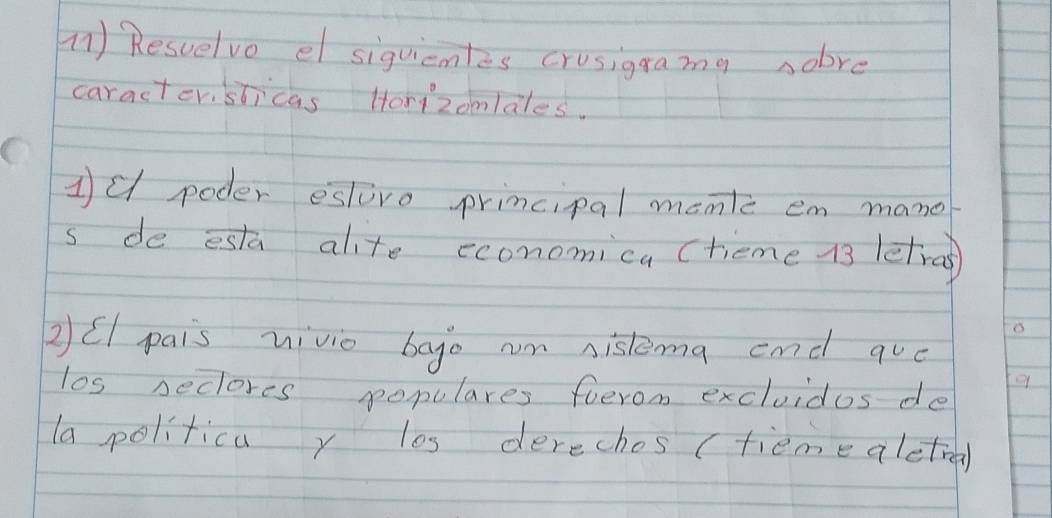 11) Resuelvo el siguientes crusigrama sobre
caracteristicas Horizomtales.
1) El poder estuvo principal mente em mano-
s de esta alite economica (tieme 13 letras)
2) El pais vivio bajo um sistema emd que
los sectores populares fuerom excluidos de
la politica y los derechos (tieme 9 letra)
o
a